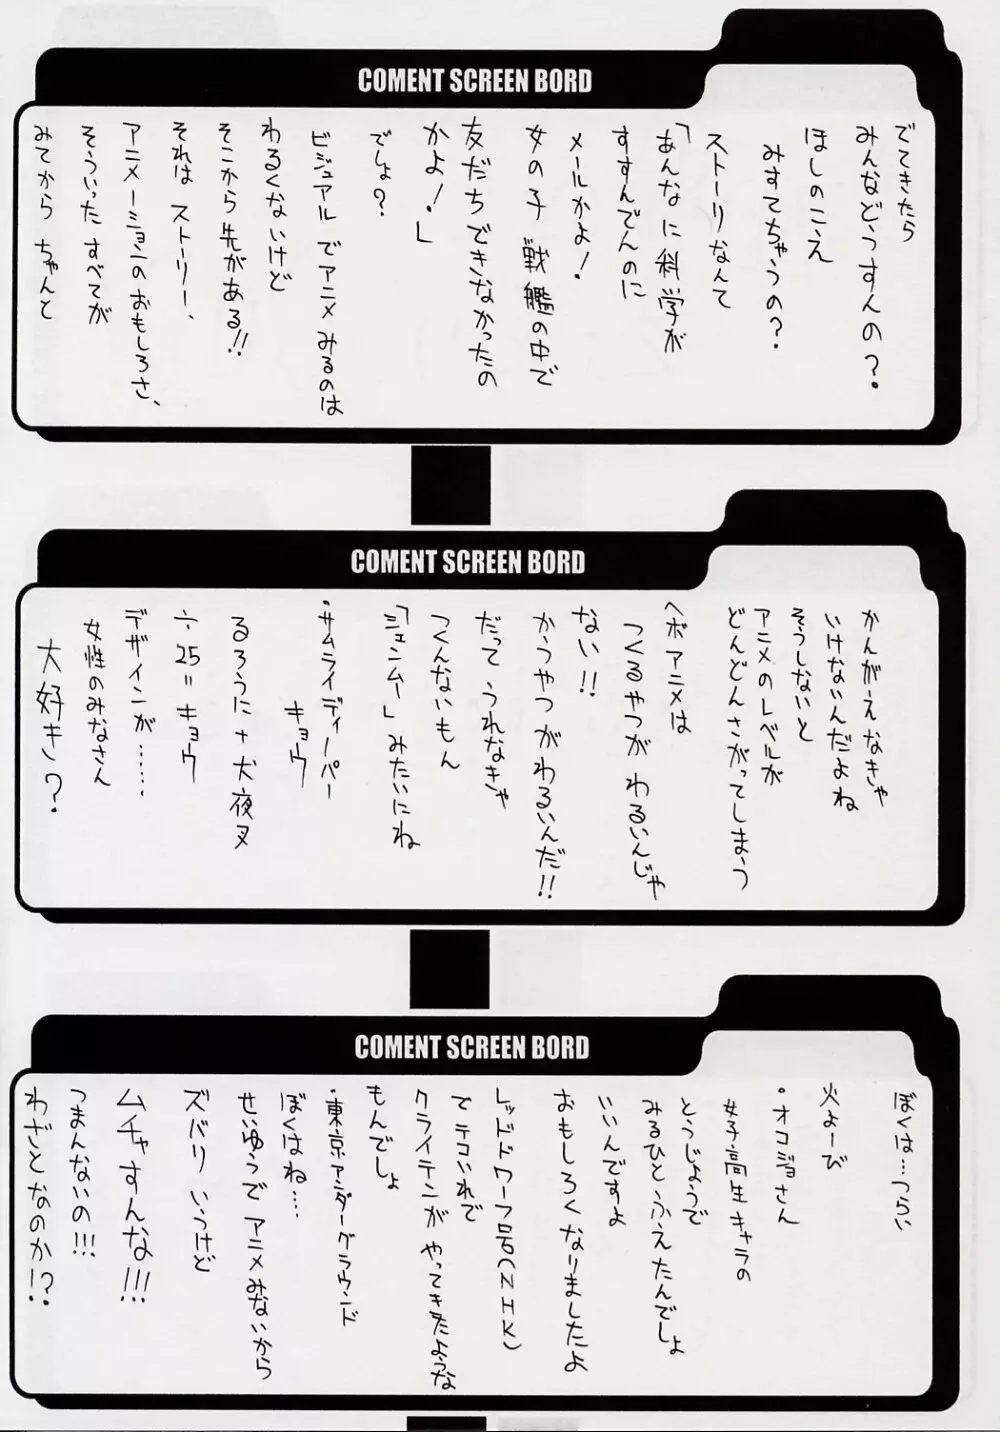 COMENT SCREEN BORD
でてきたら
みんなどうすんの?
ほしのこえ
みすてちゃうの?
ストーリなんて
「あんなに科学が
すすんでんのに
メールかよ!
女の子 戦艦の中で
友だちできなかったの
かよ!」
でしょ?
ビジュアルでアニメみるのは
わるくないけど
そこから先がある!!
それは ストーリー、
アニメーションのおもしろさ、
そういった すべてが
みてから ちゃんと
COMENT SCREEN BORD
かんがえなきゃ
いけないんだよね
そうしないと
アニメのレベルが
どんどんさがってしまう
ヘボアニメは
つくるやつが わるいんじゃ
ない!!
かうやつがわるいんだ!!
だって うれなきゃ
つくんないもん
「ジュンムー」みたいにね
・サムライディーパー
キョウ
るろうに+犬夜叉
÷25=キョウ
デザインが……
女性のみなさん
大好き?
COMENT SCREEN BORD
ぼくは…つらい
火よーび
・オコジョさん
女子高生キャラの
とうじょうで
みるひとふえたんでしょ
いいんですよ
おもしろくなりましたよ
レッドドワーフ号(NHK)
でテコいれで
クライテンが やってきたような
もんでしょ
・東京アンダーグラウンド
ぼくはね…
せいゆうで アニメみないから
ズバリ いうけど
ムチャすんな!!!
つまんないの!!!
わざとなのか!?